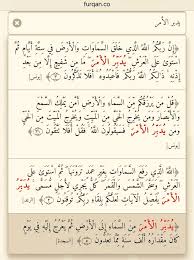 furqan.co
يدبر الأمر
﴿إِنَّ رَبَّكُمُ اللَّهُ الَّذِي خَلَقَ السَّمَاوَاتِ وَالْأَرْضَ فِي سِتَّةِ أَيَّامٍ ثُمَّ
اسْتَوَىٰ عَلَى الْعَرْشِ يُدَبِّرُ الْأَمْرَ مَا مِن شَفِيعٍ إِلَّا مِن بَعْدِ
إِذْنِهِ ذَٰلِكُمُ اللَّهُ رَبُّكُمْ فَاعْبُدُوهُ أَفَلَا تَذَكَّرُونَ ٣﴾
[يونس]
﴿قُلْ مَن يَرْزُقُكُم مِّنَ السَّمَاءِ وَالْأَرْضِ أَمَّن يَمْلِكُ السَّمْعَ
وَالْأَبْصَارَ وَمَن يُخْرِجُ الْحَيَّ مِنَ الْمَيِّتِ وَيُخْرِجُ الْمَيِّتَ مِنَ الْحَيِّ
وَمَن يُدَبِّرُ الْأَمْرَ فَسَيَقُولُونَ اللَّهُ فَقُلْ أَفَلَا تَتَّقُونَ ٣١﴾ [يونس]
﴿اللَّهُ الَّذِي رَفَعَ السَّمَاوَاتِ بِغَيْرِ عَمَدٍ تَرَوْنَهَا ثُمَّ اسْتَوَىٰ عَلَى
الْعَرْشِ وَسَخَّرَ الشَّمْسَ وَالْقَمَرَ كُلٌّ يَجْرِي لِأَجَلٍ مُّسَمًّى يُدَبِّرُ
الْأَمْرَ يُفَصِّلُ الْآيَاتِ لَعَلَّكُم بِلِقَاءِ رَبِّكُمْ تُوقِنُونَ ٢﴾ [الرعد]
﴿يُدَبِّرُ الْأَمْرَ مِنَ السَّمَاءِ إِلَى الْأَرْضِ ثُمَّ يَعْرُجُ إِلَيْهِ فِي يَوْمٍ
كَانَ مِقْدَارُهُ أَلْفَ سَنَةٍ مِّمَّا تَعُدُّونَ ٥﴾ [السجدة]